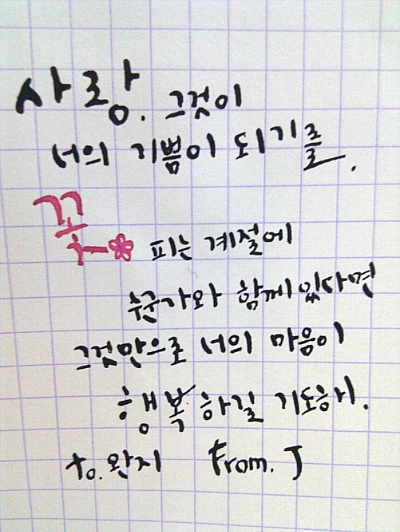 사랑. 그것이
너의 기쁨이 되기를.
꽃 피는 계절에
누군가와 함께 있다면
그것만으로 너의 마음이
행복하길 기도해.
to. 완지 From. J